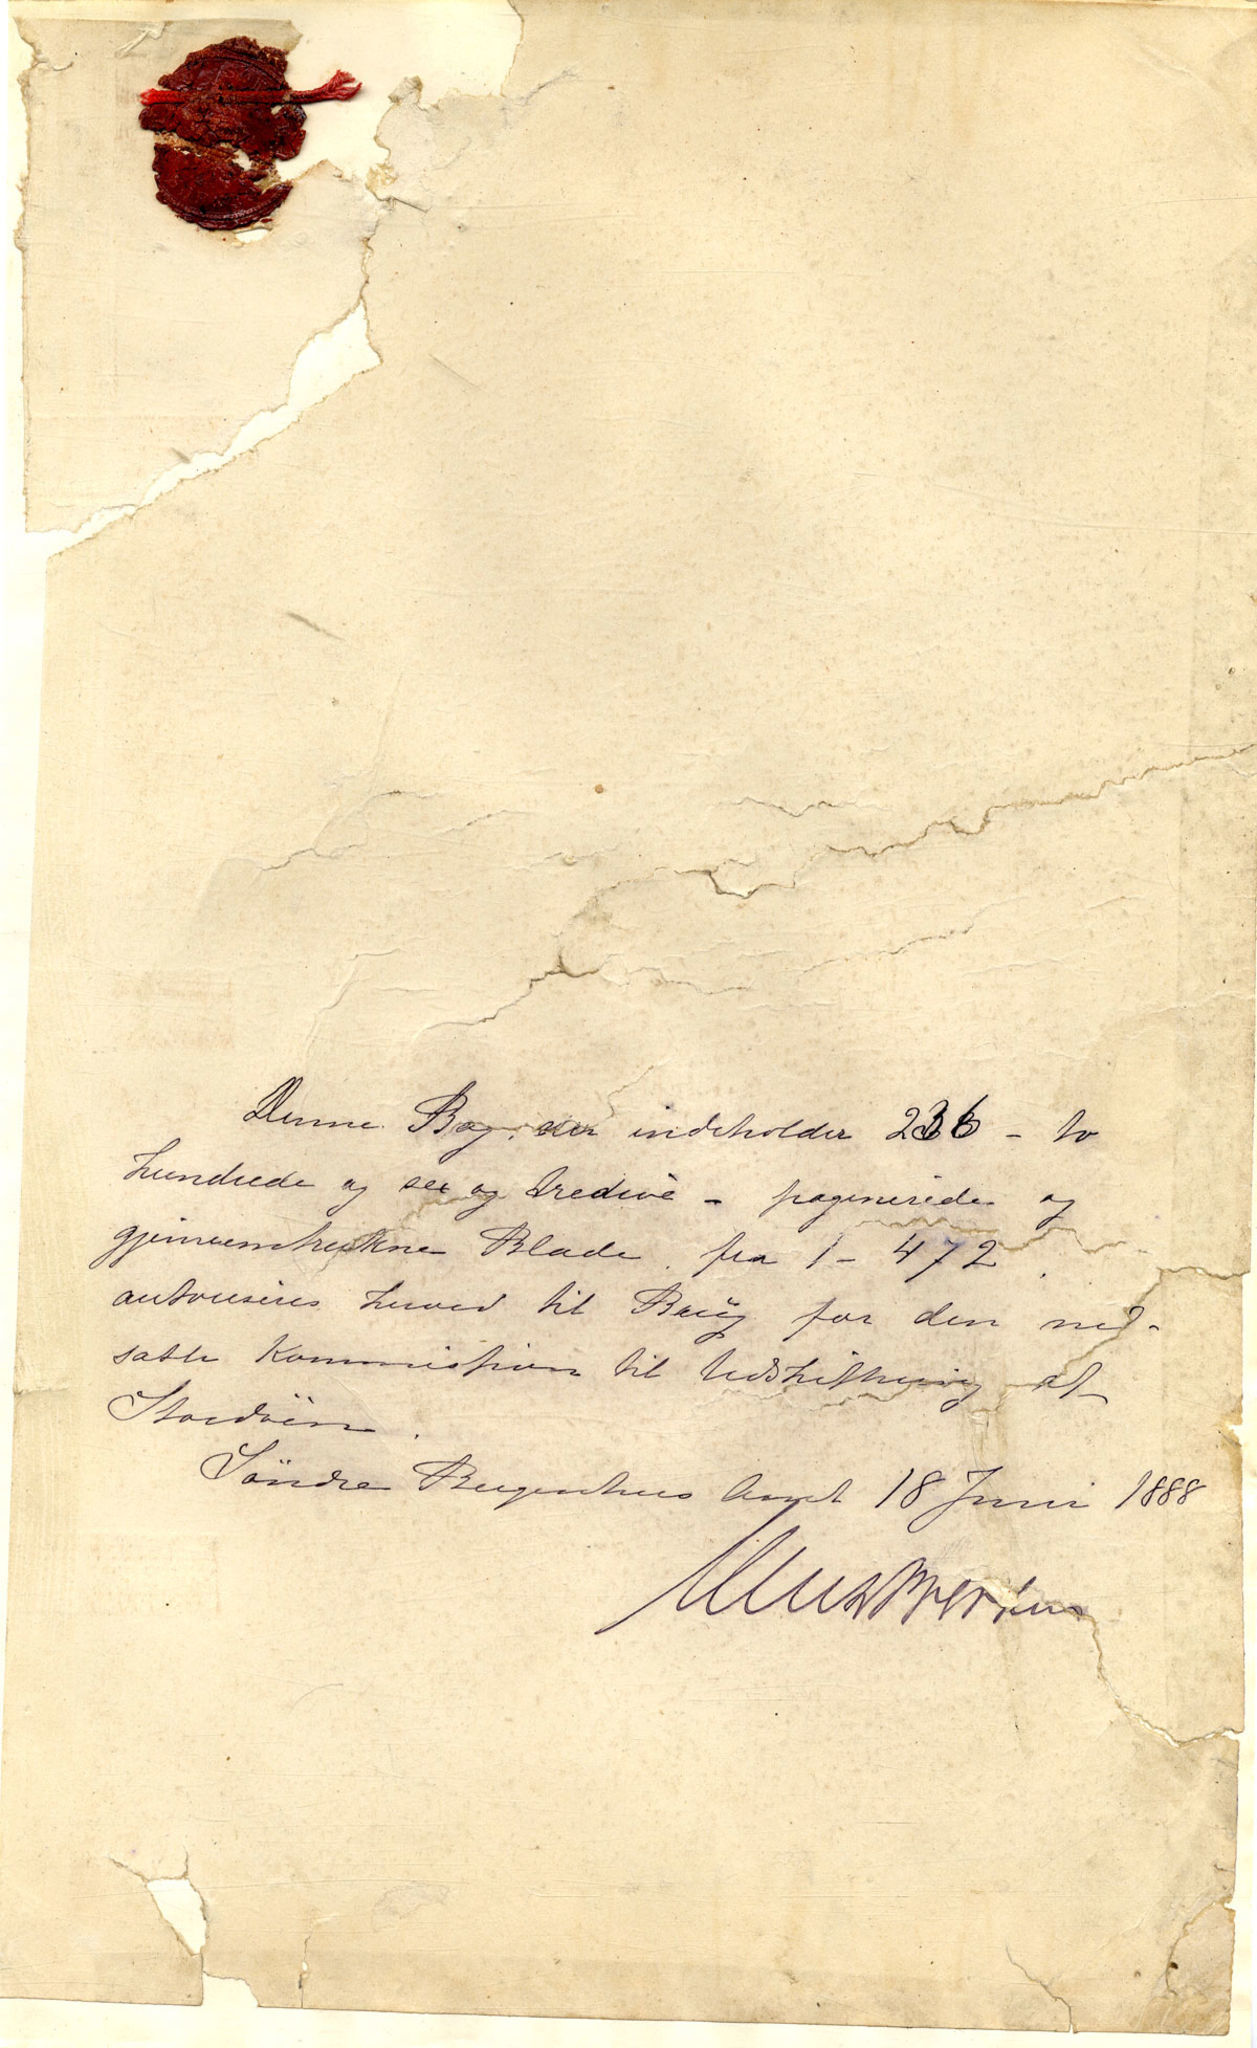 Denne Bog, der indeholder 236 - to
hundrede og sex og tredive - paginerede og
gjennemtrukne Blade fra 1 - 472,
autoriseres herved til Brug for den ned-
satte Kommission til Udskiftning af
Stordöen.
Söndre Bergenhus Amt 18 Juni 1888